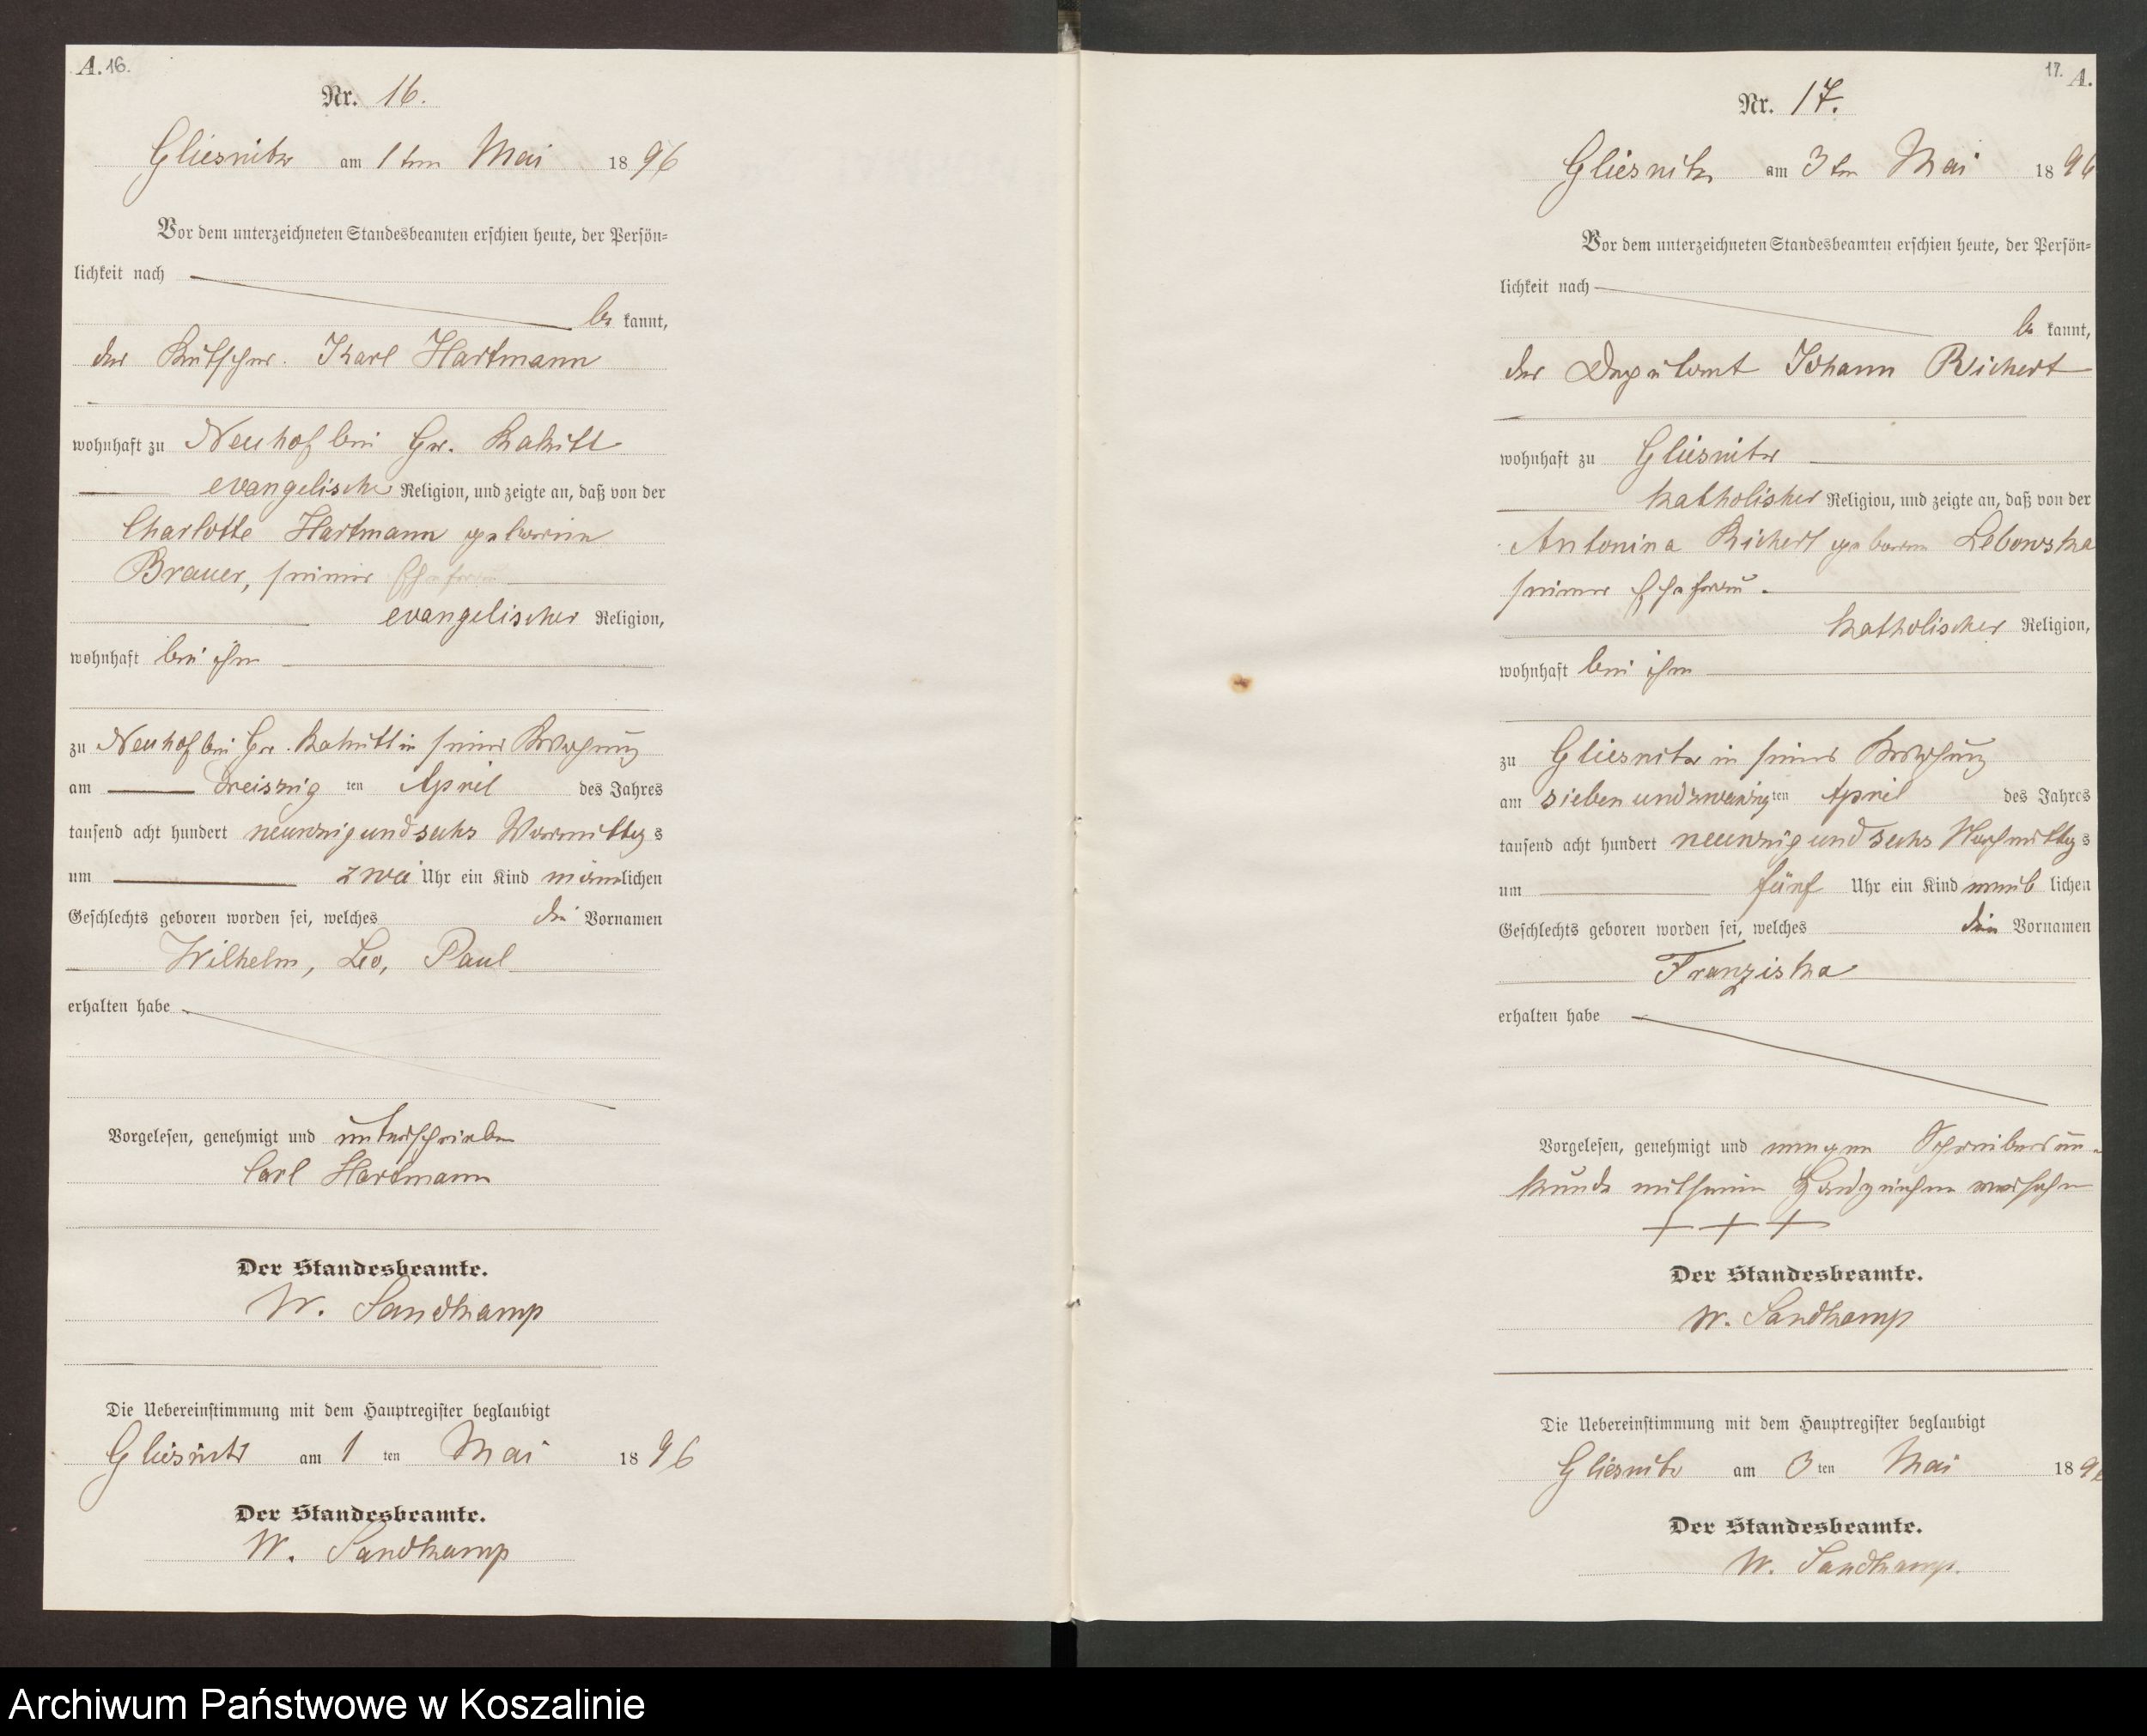 A. 16.
Nr. 16.
Gliesnitz am 1ten Mai 1896
Vor dem unterzeichneten Standesbeamten erschien heute, der Persön=
lichkeit nach
be kannt,
der Kutscher Karl Hartmann
wohnhaft zu Neuhof bei Gr.
evangelischer Religion, und zeigte an, daß von der
Charlotte Hartmann geborene
Brauer, seiner Ehefrau
evangelischer Religion,
wohnhaft bei ihm
zu Neuhof bei Gr. in seiner Wohnung
am dreiszig ten April des Jahres
tausend acht hundert neunzig und sechs Vormittags
um zwei Uhr ein Kind männlichen
Geschlechts geboren worden sei, welches die Vornamen
Wilhelm, Leo, Paul
erhalten habe
Vorgelesen, genehmigt und unterschrieben
Carl Hartmann
Der Standesbeamte.
W. Sandkamp
Die Uebereinstimmung mit dem Hauptregister beglaubigt
Gliesnitz am 1 ten Mai 1896
Der Standesbeamte.
W. Sandkamp
17. A.
Nr. 17.
Gliesnitz am 3ten Mai 1896
Vor dem unterzeichneten Standesbeamten erschien heute, der Persön=
lichkeit nach
be kannt,
der Deputant Johann Richert
wohnhaft zu Gliesnitz
katholischer Religion, und zeigte an, daß von der
Antonina Richert geborene Lebowska
seiner Ehefrau.
katholischer Religion,
wohnhaft bei ihm
zu Gliesnitz in seiner Wohnung
am siebenundzwanzig ten April des Jahres
tausend acht hundert neunzig und sechs Nachmittags
um fünf Uhr ein Kind weib lichen
Geschlechts geboren worden sei, welches den Vornamen
Franziska
erhalten habe
Vorgelesen, genehmigt und wegen Schreibensun-
kunde mit seinem Handzeichen versehen
+ + +
Der Standesbeamte.
W. Sandkamp
Die Uebereinstimmung mit dem Hauptregister beglaubigt
Gliesnitz am 3 ten Mai 1896
Der Standesbeamte.
W. Sandkamp.
Archiwum Państwowe w Koszalinie